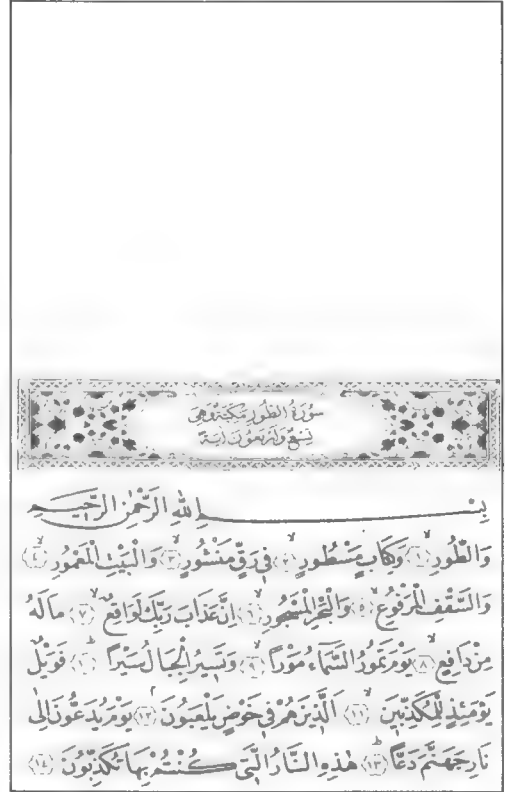 سُورَةُ الطُّورِ مَكِّيَّةٌ وَهِيَ
تِسْعٌ وَاَرْبَعُونَ اٰيَةً
بِسْمِ اللّٰهِ الرَّحْمٰنِ الرَّحِيمِ
وَالطُّورِۙ ﴿١﴾ وَكِتَابٍ مَسْطُورٍۙ ﴿٢﴾ فِي رَقٍّ مَنْشُورٍۙ ﴿٣﴾ وَالْبَيْتِ الْمَعْمُورِۙ ﴿٤﴾
وَالسَّقْفِ الْمَرْفُوعِۙ ﴿٥﴾ وَالْبَحْرِ الْمَسْجُورِۙ ﴿٦﴾ اِنَّ عَذَابَ رَبِّكَ لَوَاقِعٌۙ ﴿٧﴾ مَا لَهُ
مِنْ دَافِعٍۙ ﴿٨﴾ يَوْمَ تَمُورُ السَّمَٓاءُ مَوْرًاۙ ﴿٩﴾ وَتَسِيرُ الْجِبَالُ سَيْرًاۜ ﴿١٠﴾ فَوَيْلٌ
يَوْمَئِذٍ لِلْمُكَذِّبِينَۙ ﴿١١﴾ اَلَّذِينَ هُمْ فِي خَوْضٍ يَلْعَبُونَۢ ﴿١٢﴾ يَوْمَ يُدَعُّونَ اِلٰى
نَارِ جَهَنَّمَ دَعًّاۜ ﴿١٣﴾ هٰذِهِ النَّارُ الَّتِي كُنْتُمْ بِهَا تُكَذِّبُونَ ﴿١٤﴾